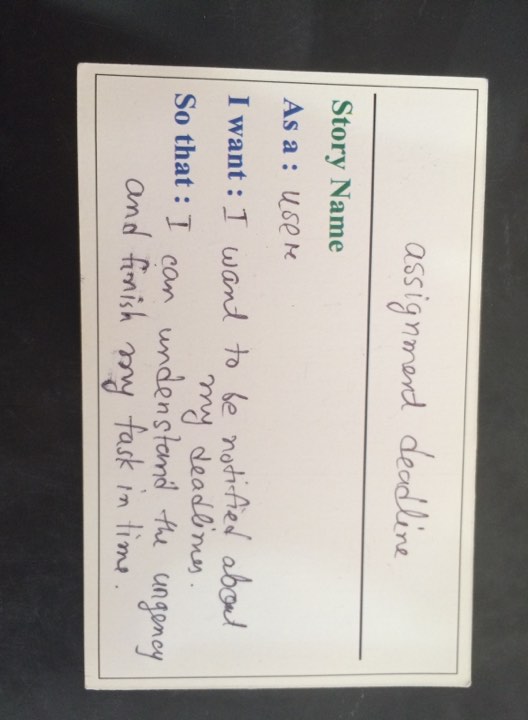 assignment deadline
Story Name
As a : user
I want : I want to be notified about
my deadlines.
So that : I can understand the urgency
and finish my task in time.